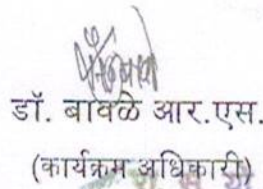 डॉ. बावळे आर.एस.
(कार्यक्रम अधिकारी)